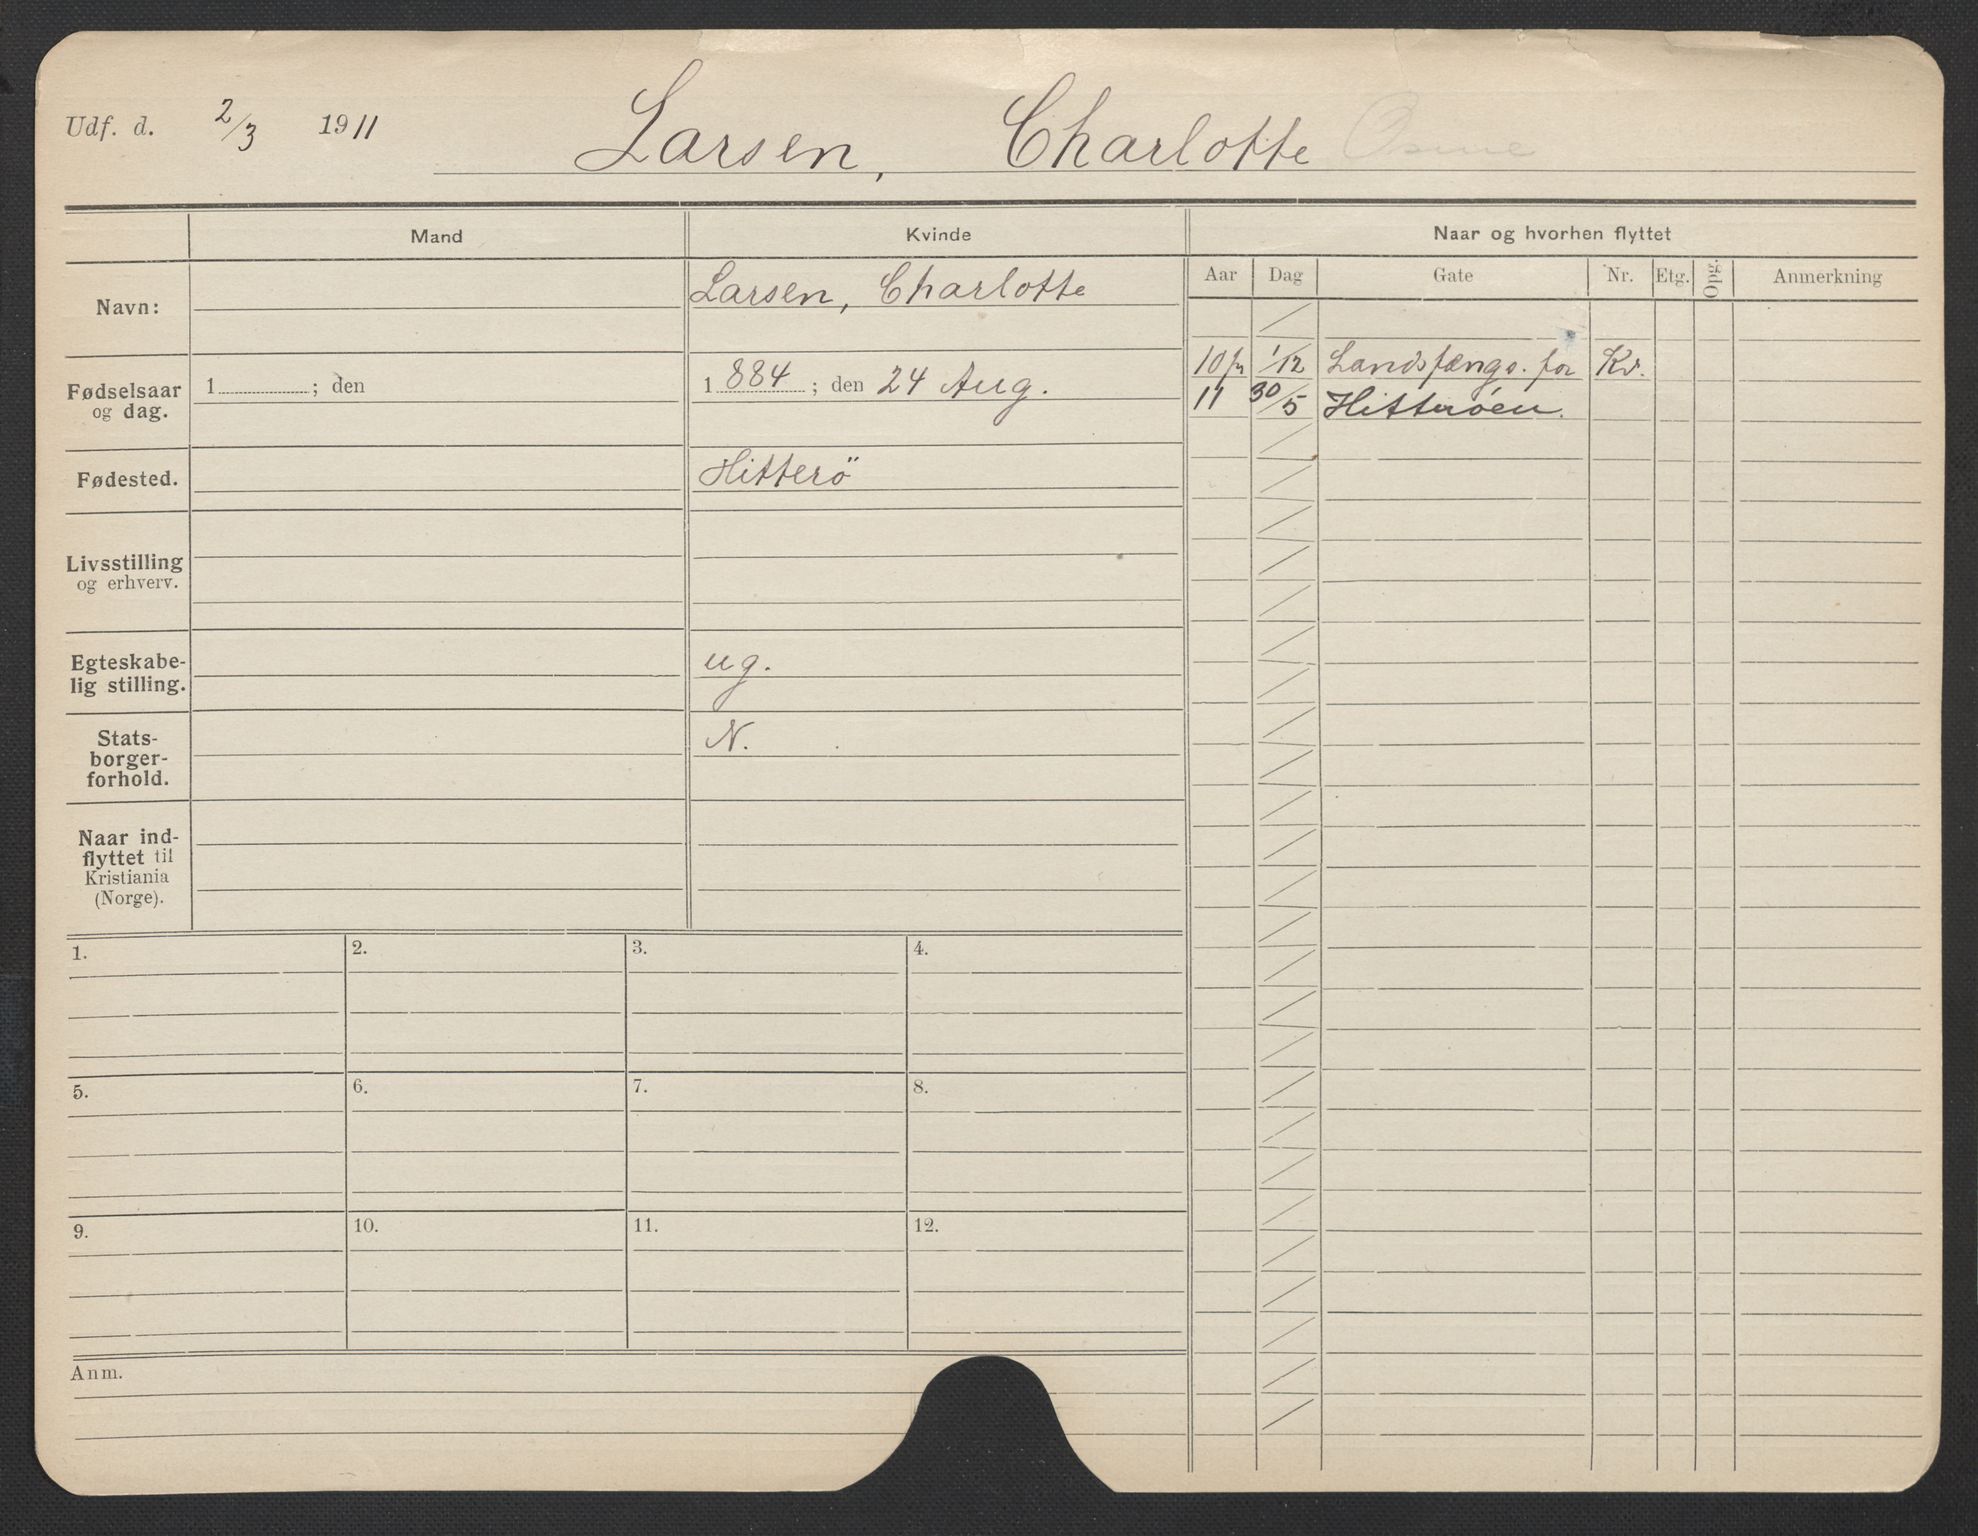 Udf. d. 2/3 1911 Larsen, Charlotte
Mand Kvinde Naar og hvorhen flyttet
Aar Dag Gate Nr. Etg. Opg. Anmerkning
Navn: Larsen, Charlotte
10 1/12 Landsfængs. for Kv.
Fødselsaar og dag. 1 ; den 1884 ; den 24 Aug.
11 30/5 Hitterøen.
Fødested. Hitterö
Livsstilling
og erhverv.
Egteskabe-
lig stilling. ug.
Stats-
borger-
forhold. N.
Naar ind-
flyttet til
Kristiania
(Norge).
1. 2. 3. 4.
5. 6. 7. 8.
9. 10. 11. 12.
Anm.